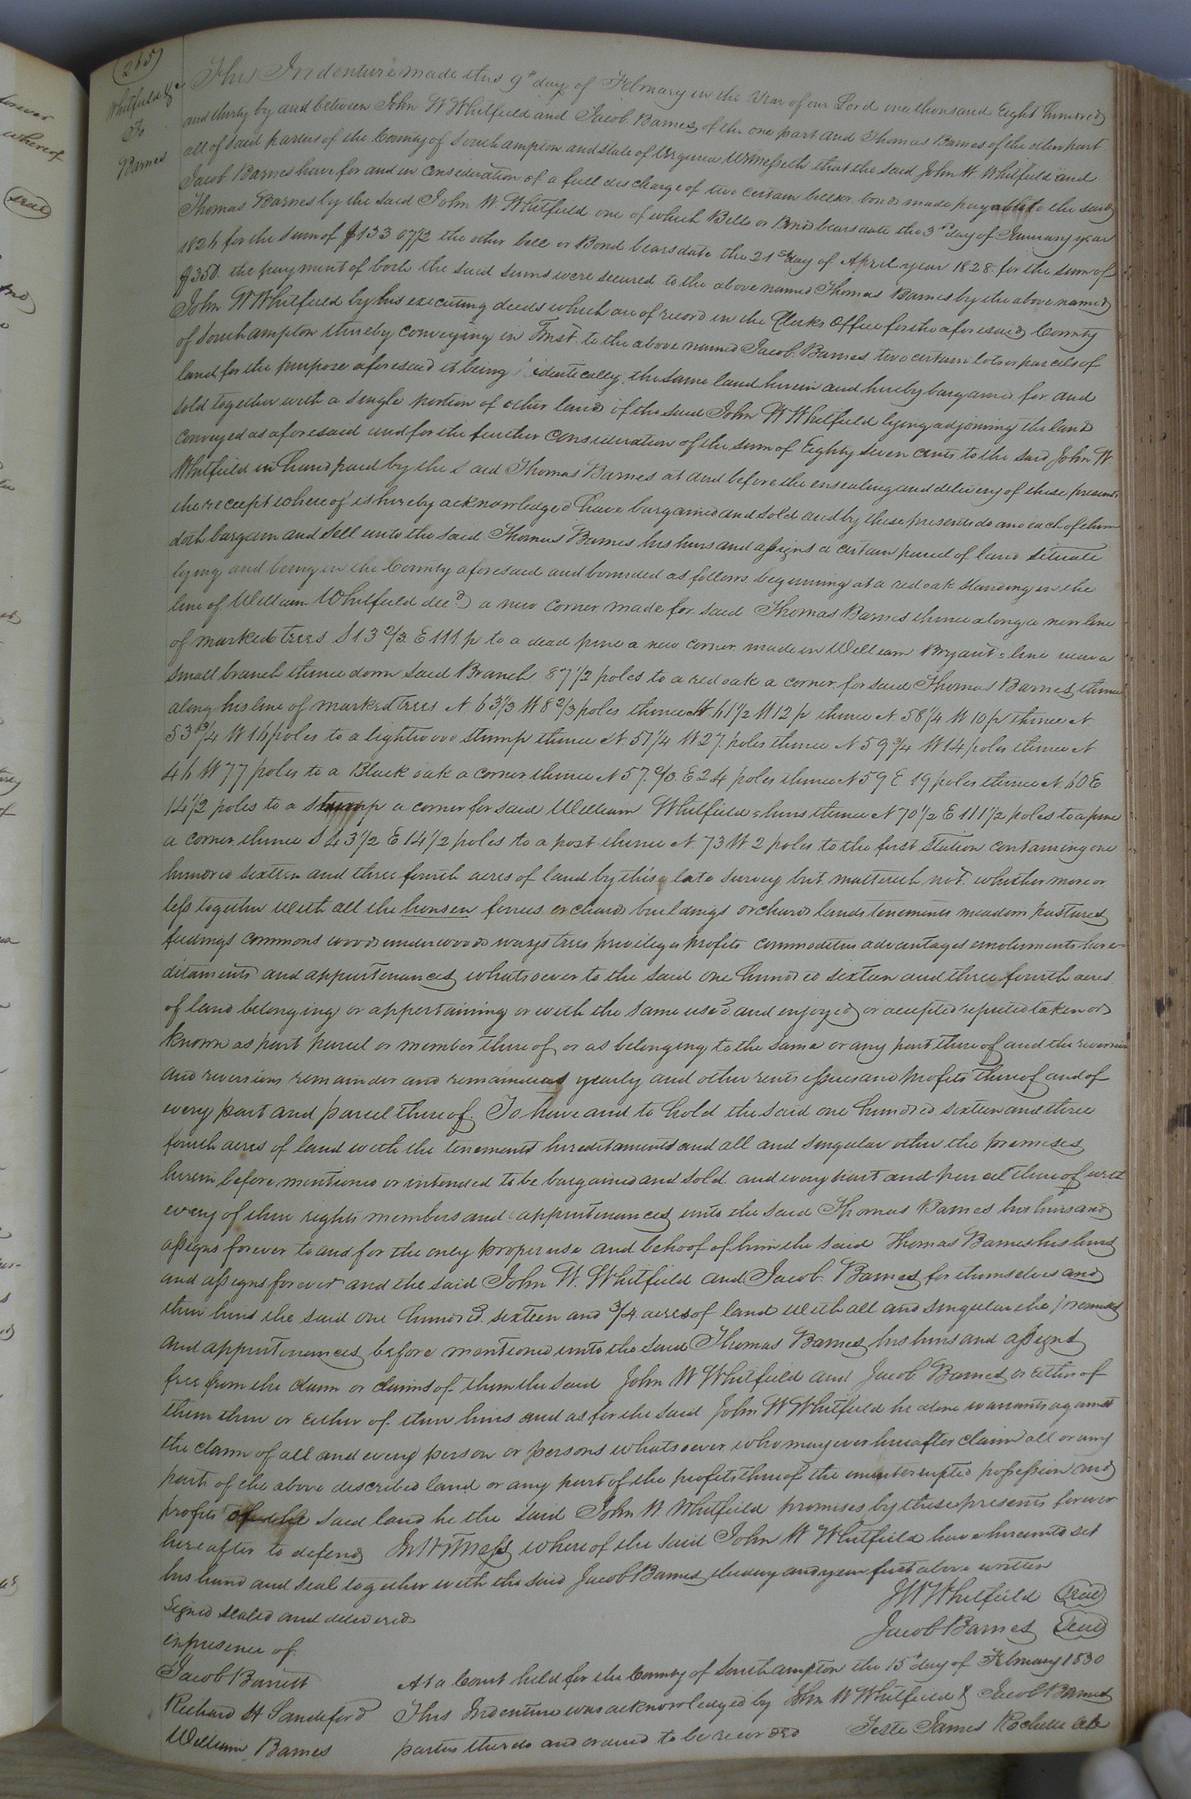 265
Whitfield &c
To
Barnes
This Indenture made this 9th day of February in the Year of our Lord one thousand Eight hundred
and thirty by and between John W Whitfield and Jacob Barnes of the one part and Thomas Barnes of the other part
all of said parties of the County of Southampton and state of Virginia Witnesseth that the said John W Whitfield and
Jacob Barnes have for and in consideration of a full discharge of two certain bills or bonds made payable to the said
Thomas Barnes by the said John W. Whitfield one of which Bills or Bonds bears date the 3rd day of January year
1826 for the sum of $133 07/2 the other bill or Bond bears date the 21st day of April year 1828 for the sum of
$350. the payment of both the said sums were secured to the above named Thomas Barnes by the above named
John W Whitfield by his executing deeds which are of record in the Clerks Office for the aforesaid County
of Southampton thereby conveying in Trust to the above named Jacob Barnes two certain lots or parcels of
land for the purpose aforesaid it being identically the same land herein and hereby bargained for and
sold together with a single portion of other land of the said John W Whitfield lying adjoining the land
conveyed as aforesaid and for the further consideration of the sum of Eighty seven cents to the said John W.
Whitfield in hand paid by the said Thomas Barnes at and before the ensealing and delivery of these presents
the receipt whereof is hereby acknowledged have bargained and sold and by these presents do and each of them
doth bargain and sell unto the said Thomas Barnes his heirs and assigns a certain parcel of land situate
lying and being in the County aforesaid and bounded as follows beginning at a red oak standing in the
line of William Whitfield decd a new corner made for said Thomas Barnes thence along a new line
of marked trees S 13 2/3 E 111 p to a dead pine a new corner made in William Bryant's line near a
small branch thence down said Branch 87 1/2 poles to a red oak a corner for said Thomas Barnes thence
along his line of marked trees N 63 1/3 W 8 2/3 poles thence N 61 1/2 W 12 p thence N 58 1/4 W 10 p thence N
53 3/4 W 16 poles to a lightwood stump thence N 51 1/4 W 27 poles thence N 59 3/4 W 14 poles thence N
46 W 77 poles to a Black oak a corner thence N 57 2/3 E 24 poles thence N 59 E 19 poles thence N 60 E
14 1/2 poles to a stump a corner for said William Whitfield's heirs thence N 70 1/2 E 111 1/2 poles to a pine
a corner thence S 43 1/2 E 14 1/2 poles to a post thence N 73 W 2 poles to the first Station containing one
hundred sixteen and three fourth acres of land by this a late survey but mattereth not whether more or
less together with all the housen fences orchard buildings orchards lands tenements meadows pastures
feedings commons woods underwoods ways trees privileges profits commodities advantages emoluments here-
ditaments and appurtenances whatsoever to the said one hundred sixteen and three fourth acres
of land belonging or appertaining or with the same used and enjoyed or accepted reputed taken or
known as part parcel or member thereof or as belonging to the same or any part thereof and the reversion
and reversions remainder and remainders yearly and other rents issues and profits thereof and of
every part and parcel thereof To have and to hold the said one hundred sixteen and three
fourth acres of land with the tenements hereditaments and all and singular other the premises
herein before mentioned or intended to be bargained and sold and every part and parcel thereof with
every of their rights members and appurtenances unto the said Thomas Barnes his heirs and
assigns forever to and for the only proper use and behoof of him the said Thomas Barnes his heirs
and assigns forever and the said John W. Whitfield and Jacob Barnes for themselves and
their heirs the said one hundred sixteen and 3/4 acres of land with all and singular the premises
and appurtenances before mentioned unto the said Thomas Barnes his heirs and assigns
free from the claim or claims of them the said John W Whitfield and Jacob Barnes or either of
them their or either of their heirs and as for the said John W Whitfield he alone warrants against
the claim of all and every person or persons whatsoever who may ever hereafter claim all or any
part of the above described land or any part of the profits thereof the uninterrupted possession and
profits of the said land he the said John W Whitfield promises by these presents forever
hereafter to defend In Witness whereof the said John W Whitfield have hereunto set
his hand and seal together with the said Jacob Barnes the day and year first above written
Signed sealed and delivered
in presence of
Jacob Barrett
Richard H Sandeford
William Barnes
J W Whitfield Seal
Jacob Barnes Seal
At a Court held for the County of Southampton the 15th day of February 1830
This Indenture was acknowledged by John W Whitfield & Jacob Barnes
parties thereto and ordered to be recorded Teste James Rochelle Clk